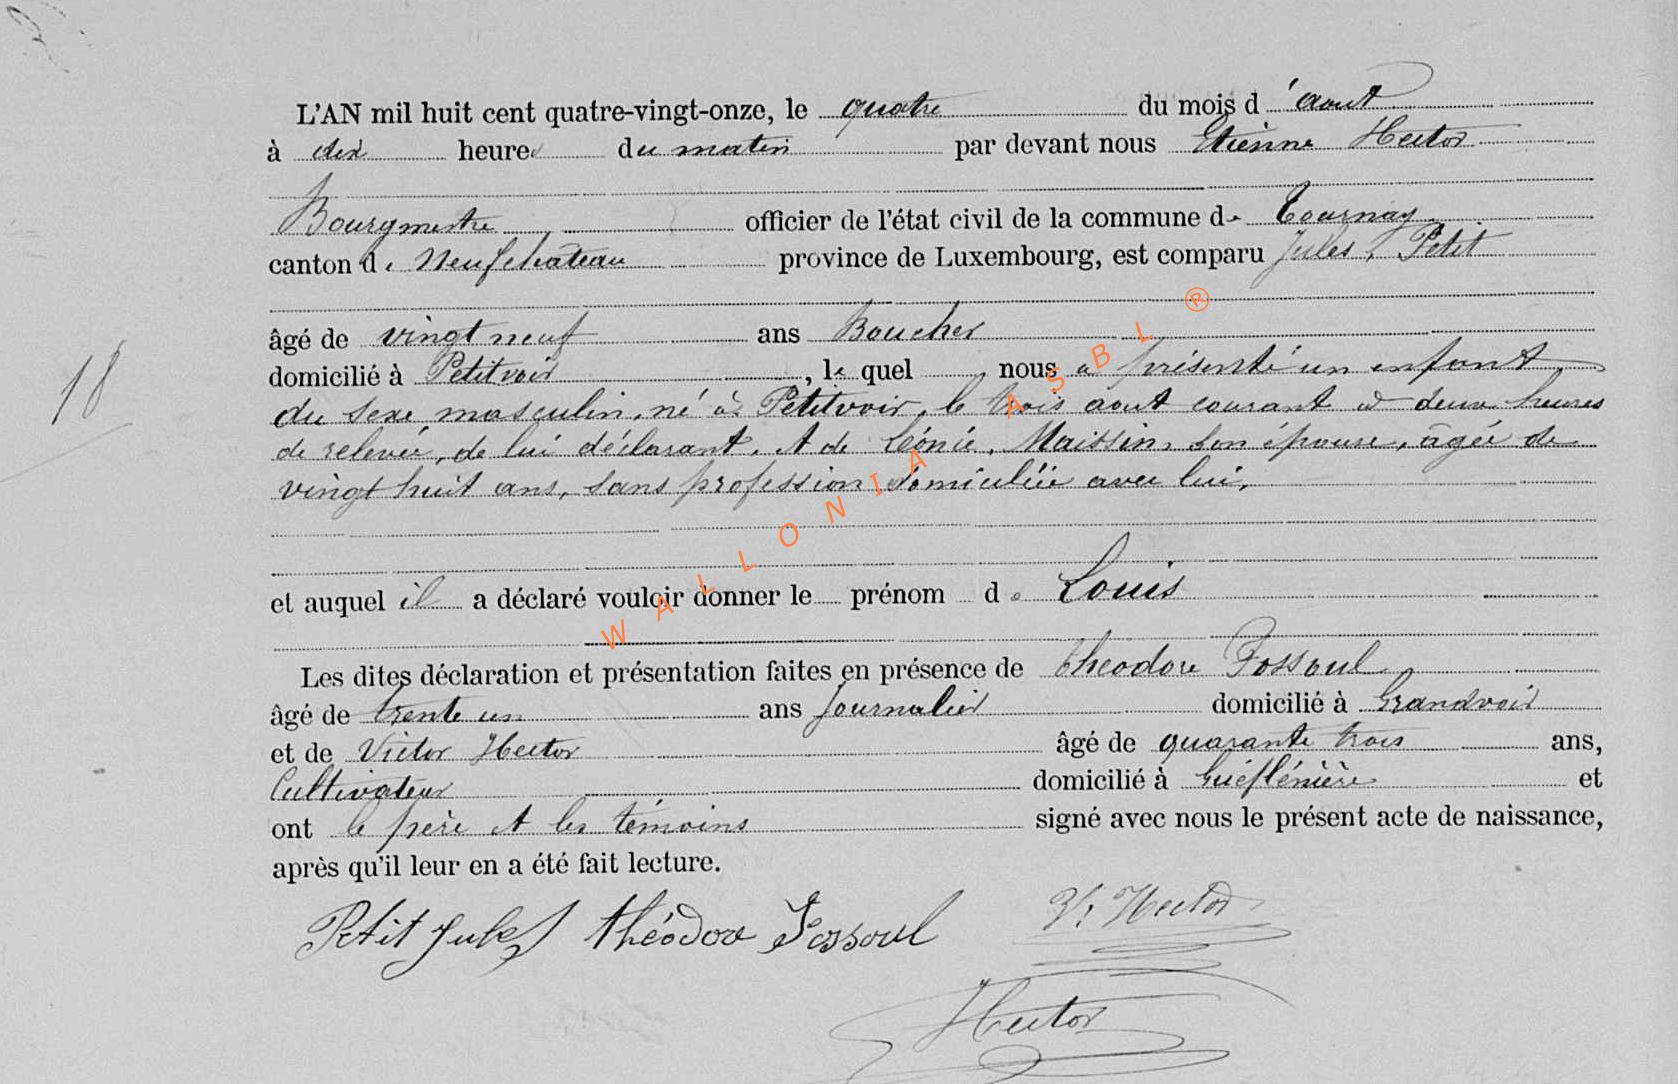 L'AN mil huit cent quatre-vingt-onze, le quatre du mois d'aout
à dix heures du matin par devant nous Etienne Hector
Bourgmestre officier de l'état civil de la commune de Tournay
canton de Neufchâteau province de Luxembourg, est comparu Jules, Petit
âgé de vingt neuf ans Boucher
domicilié à Petitvoir, lequel nous a présenté un enfant
18
du sexe masculin, né à Petitvoir, le trois aout courant à deux heures
de relevée, de lui déclarant, et de Léonie, Maissin, son épouse, âgée de
vingt huit ans, sans profession domiciliée avec lui,
et auquel il a déclaré vouloir donner le prénom de Louis
Les dites déclaration et présentation faites en présence de Théodore Fossoul
âgé de trente un ans Journalier domicilié à Grandvoir
et de Victor Hector âgé de quarante trois ans,
Cultivateur domicilié à et
ont le père et les témoins signé avec nous le présent acte de naissance,
après qu'il leur en a été fait lecture.
Petit Jules Théodore Fossoul V. Hector
Hector
WALLONIA ASBL ®